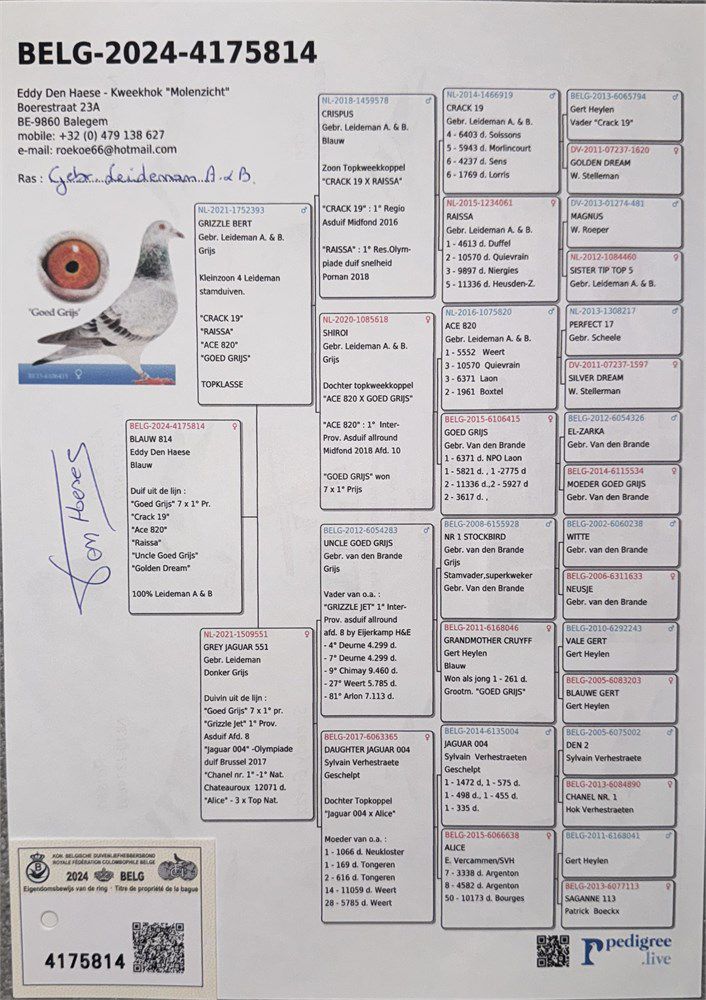 BELG-2024-4175814
Eddy Den Haese - Kweekhok "Molenzicht"
Boerestraat 23A
BE-9860 Balegem
mobile: +32 (0) 479 138 627
e-mail: roekoe66@hotmail.com
Ras : Gebr. Leideman A & B.
"Goed Grijs"
BE15-6106415 ♀
BELG-2024-4175814 ♀
BLAUW 814
Eddy Den Haese
Blauw
Duif uit de lijn :
"Goed Grijs" 7 x 1° Pr.
"Crack 19"
"Ace 820"
"Raissa"
"Uncle Goed Grijs"
"Golden Dream"
100% Leideman A & B
NL-2021-1752393 ♂
GRIZZLE BERT
Gebr. Leideman A. & B.
Grijs
Kleinzoon 4 Leideman
stamduiven.
"CRACK 19"
"RAISSA"
"ACE 820"
"GOED GRIJS"
TOPKLASSE
NL-2021-1509551 ♀
GREY JAGUAR 551
Gebr. Leideman
Donker Grijs
Duivin uit de lijn :
"Goed Grijs" 7 x 1° pr.
"Grizzle Jet" 1° Prov.
Asduif Afd. 8
"Jaguar 004" -Olympiade
duif Brussel 2017
"Chanel nr. 1" -1° Nat.
Chateauroux 12071 d.
"Alice" - 3 x Top Nat.
NL-2018-1459578 ♂
CRISPUS
Gebr. Leideman A. & B.
Blauw
Zoon Topkweekkoppel
"CRACK 19 X RAISSA"
"CRACK 19" : 1° Regio
Asduif Midfond 2016
"RAISSA" : 1° Res.Olym-
piade duif snelheid
Poman 2018
NL-2020-1085618 ♀
SHIROI
Gebr. Leideman A. & B.
Grijs
Dochter topkweekkoppel
"ACE 820 X GOED GRIJS"
"ACE 820" : 1° Inter-
Prov. Asduif allround
Midfond 2018 Afd. 10
"GOED GRIJS" won
7 x 1° Prijs
BELG-2012-6054283 ♂
UNCLE GOED GRIJS
Gebr. van den Brande
Grijs
Vader van o.a. :
"GRIZZLE JET" 1° Inter-
Prov. asduif allround
afd. 8 by Eijerkamp H&E
- 4° Deurne 4.299 d.
- 7° Deurne 4.299 d.
- 9° Chimay 9.460 d.
- 27° Weert 5.785 d.
- 81° Arlon 7.113 d.
BELG-2017-6063365 ♀
DAUGHTER JAGUAR 004
Sylvain Verhestraete
Geschelpt
Dochter Topkoppel
"Jaguar 004 x Alice"
Moeder van o.a. :
1 - 1066 d. Neukloster
1 - 169 d. Tongeren
2 - 616 d. Tongeren
14 - 11059 d. Weert
28 - 5785 d. Weert
NL-2014-1466919 ♂
CRACK 19
Gebr. Leideman A. & B.
4 - 6403 d. Soissons
5 - 5943 d. Morlincourt
6 - 4237 d. Sens
6 - 1769 d. Lorris
NL-2015-1234061 ♀
RAISSA
Gebr. Leideman A. & B.
1 - 4613 d. Duffel
2 - 10570 d. Quievrain
3 - 9897 d. Niergies
5 - 11336 d. Heusden-Z.
NL-2016-1075820 ♂
ACE 820
Gebr. Leideman A. & B.
1 - 5552 Weert
3 - 10570 Quievrain
3 - 6371 Laon
2 - 1961 Boxtel
BELG-2015-6106415 ♀
GOED GRIJS
Gebr. Van den Brande
1 - 6371 d. NPO Laon
1 - 5821 d. , 1 -2775 d
2 - 11336 d.,2 - 5927 d
2 - 3617 d. ,
BELG-2008-6155928 ♂
NR 1 STOCKBIRD
Gebr. van den Brande
Grijs
Stamvader,superkweker
Gebr. Van den Brande
BELG-2011-6168046 ♀
GRANDMOTHER CRUYFF
Gert Heylen
Blauw
Won als jong 1 - 261 d.
Grootm. "GOED GRIJS"
BELG-2014-6135004 ♂
JAGUAR 004
Sylvain Verhestraeten
Geschelpt
1 - 1472 d, 1 - 575 d.
1 - 498 d., 1 - 455 d.
1 - 335 d.
BELG-2015-6066638 ♀
ALICE
E. Vercammen/SVH
7 - 3338 d. Argenton
8 - 4582 d. Argenton
50 - 10173 d. Bourges
BELG-2013-6065794 ♂
Gert Heylen
Vader "Crack 19"
DV-2011-07237-1620 ♀
GOLDEN DREAM
W. Stelleman
DV-2013-01274-481 ♂
MAGNUS
W. Roeper
NL-2012-1084460 ♀
SISTER TIP TOP 5
Gebr. Leideman A. & B.
NL-2013-1308217 ♂
PERFECT 17
Gebr. Scheele
DV-2011-07237-1597 ♀
SILVER DREAM
W. Stellerman
BELG-2012-6054326 ♂
EL-ZARKA
Gebr. Van den Brande
BELG-2014-6115534 ♀
MOEDER GOED GRIJS
Gebr. Van den Brande
BELG-2002-6060238 ♂
WITTE
Gebr. van den Brande
BELG-2006-6311633 ♀
NEUSJE
Gebr. van den Brande
BELG-2010-6292243 ♂
VALE GERT
Gert Heylen
BELG-2005-6083203 ♀
BLAUWE GERT
Gert Heylen
BELG-2005-6075002 ♂
DEN 2
Sylvain Verhestraete
BELG-2013-6084890 ♀
CHANEL NR. 1
Hok Verhestraeten
BELG-2011-6168041 ♂
Gert Heylen
BELG-2013-6077113 ♀
SAGANNE 113
Patrick Boeckx
KON. BELGISCHE DUIVENLIEFHEBBERSBOND
ROYALE FÉDÉRATION COLOMBOPHILE BELGE
2024 BELG
Eigendomsbewijs van de ring - Titre de propriété de la bague
4175814
pedigree
.live